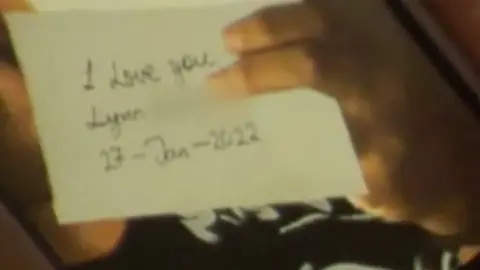 I Love you
Lynn
27-Jan-2022